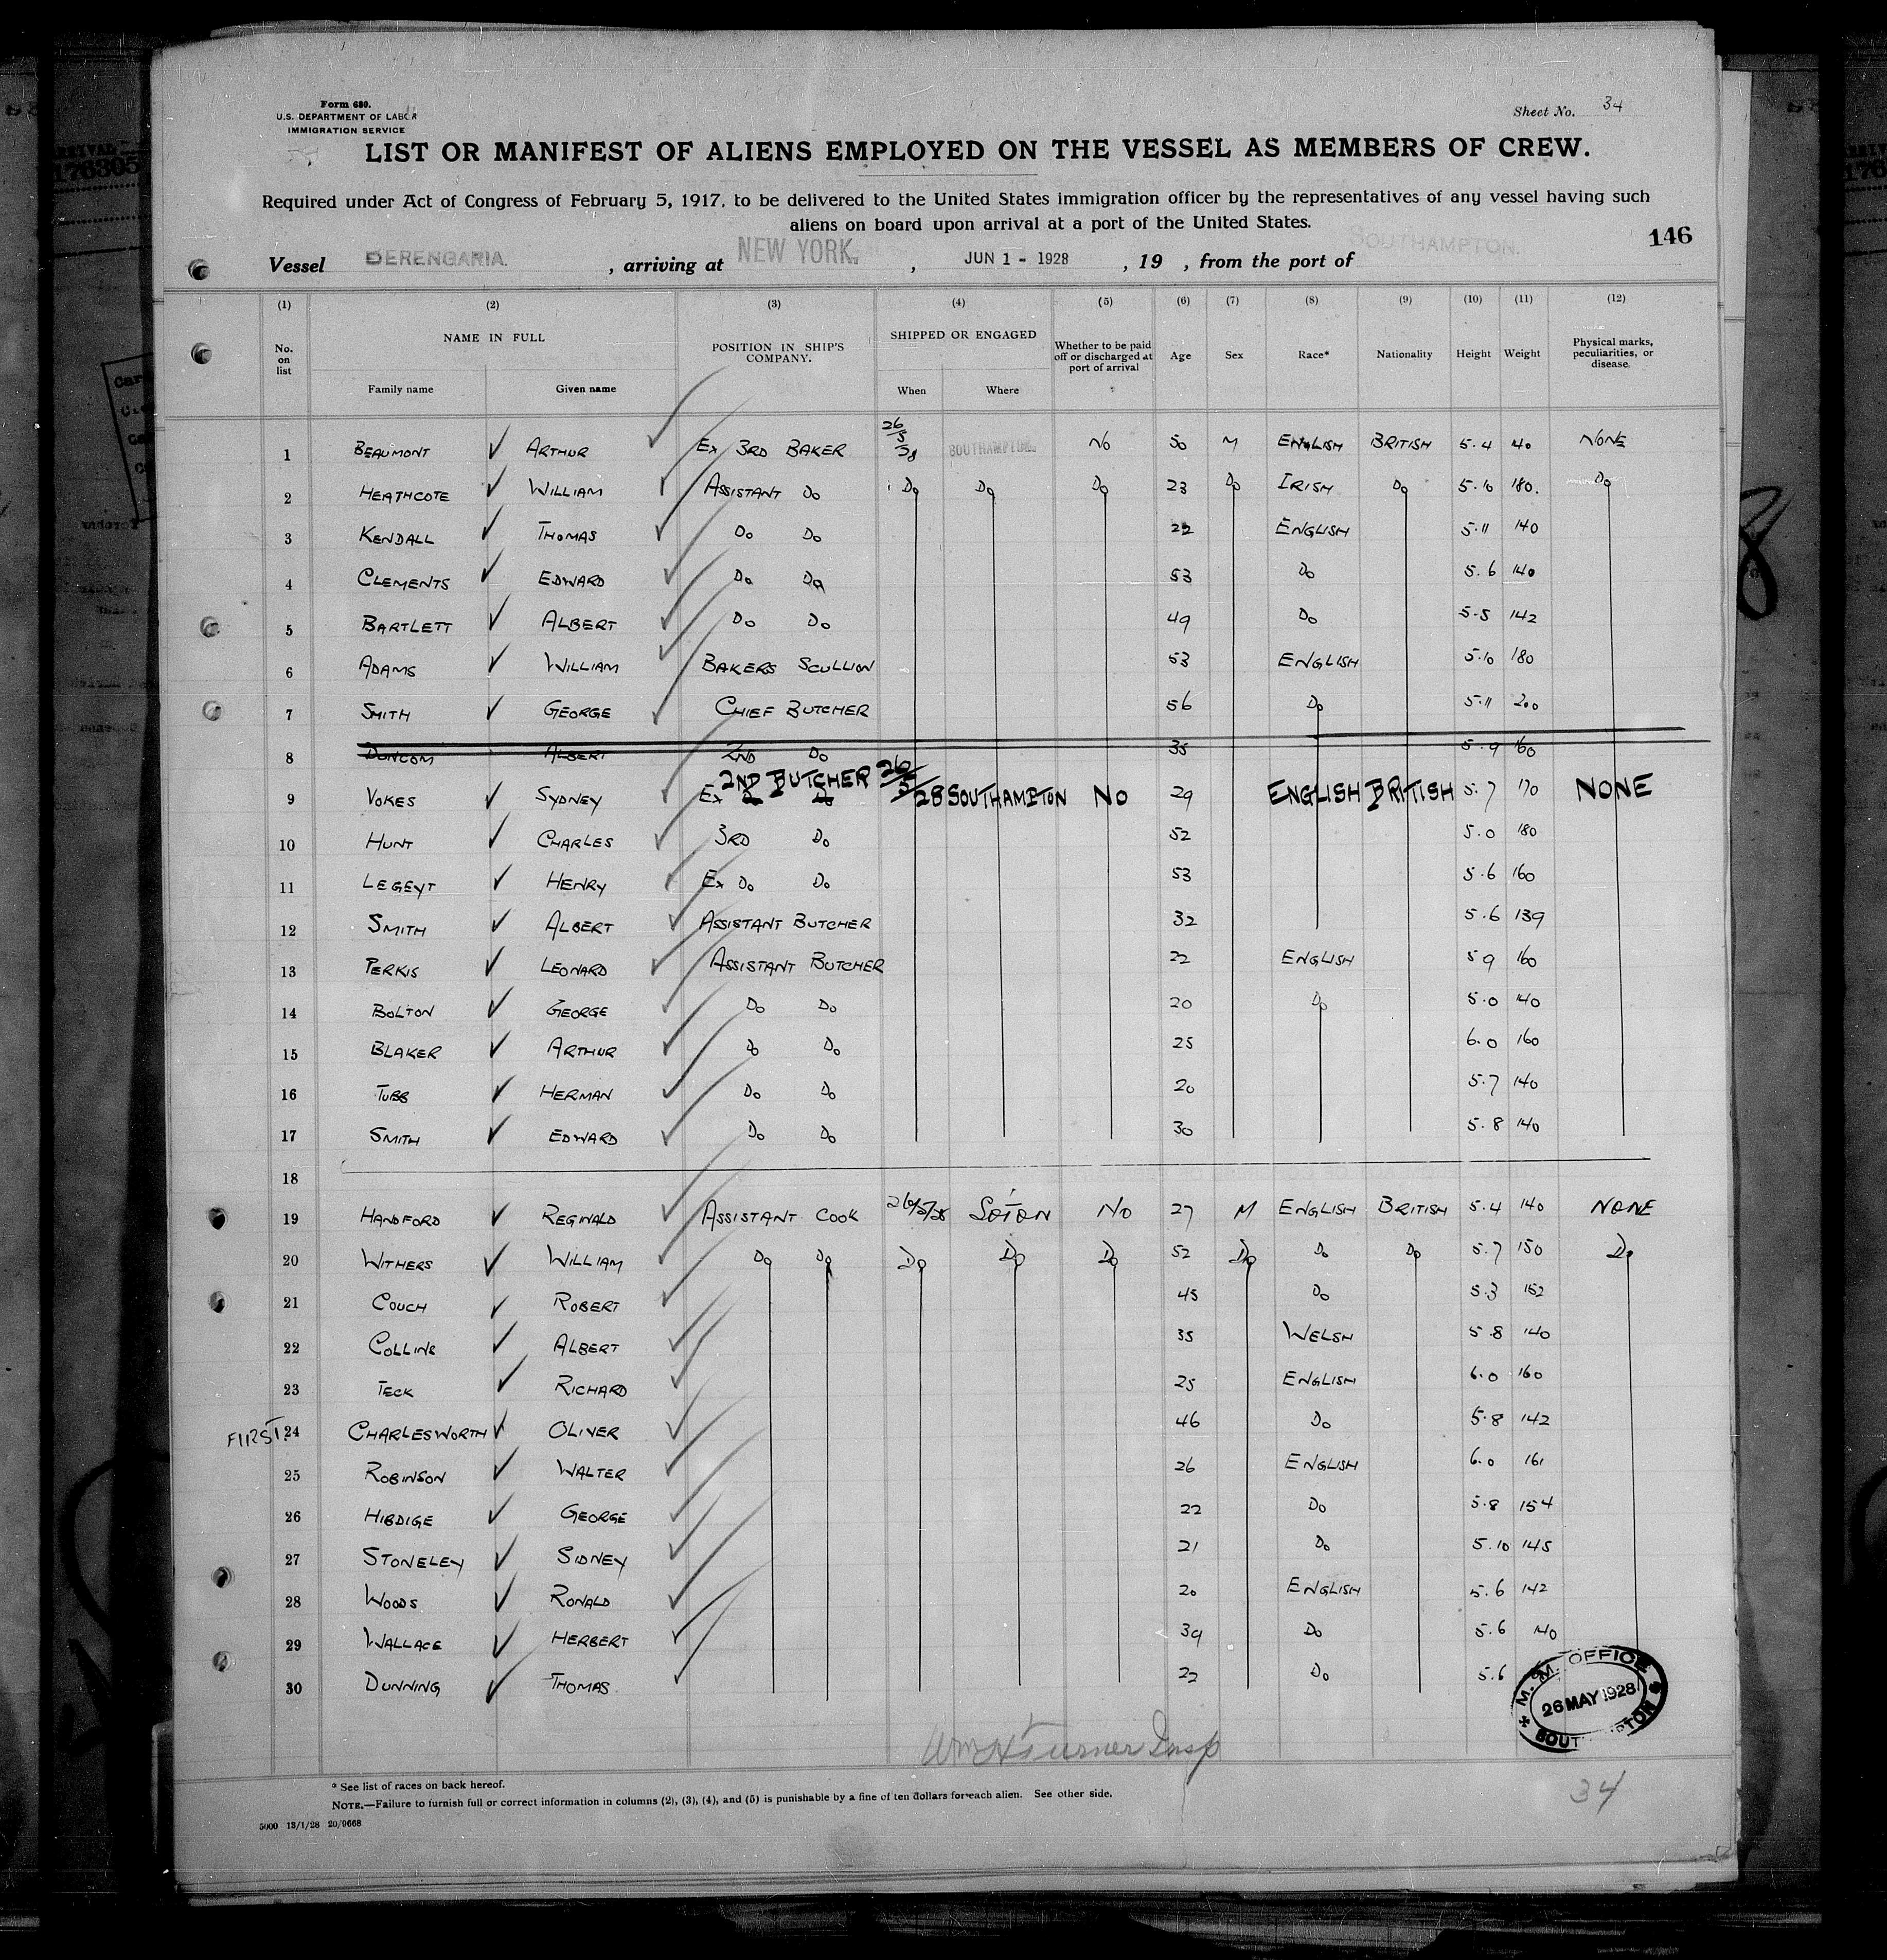 Form 680.
U.S. DEPARTMENT OF LABOR
IMMIGRATION SERVICE
Sheet No. 34
LIST OR MANIFEST OF ALIENS EMPLOYED ON THE VESSEL AS MEMBERS OF CREW.
Required under Act of Congress of February 5, 1917, to be delivered to the United States immigration officer by the representatives of any vessel having such
aliens on board upon arrival at a port of the United States.
146
Vessel BERENGARIA. , arriving at NEW YORK. , JUN 1 - 1928 , 19 , from the port of SOUTHAMPTON.
(1) (2) (3) (4) (5) (6) (7) (8) (9) (10) (11) (12)
No. on list NAME IN FULL POSITION IN SHIP'S COMPANY. SHIPPED OR ENGAGED Whether to be paid off or discharged at port of arrival Age Sex Race* Nationality Height Weight Physical marks, peculiarities, or disease.
Family name Given name When Where
1 BEAUMONT ARTHUR Ex 3RD BAKER 26/5/28 SOUTHAMPTON No 50 M ENGLISH BRITISH 5.4 40 NONE
2 HEATHCOTE WILLIAM ASSISTANT Do Do Do Do 23 Do IRISH Do 5.10 180. Do
3 KENDALL THOMAS Do Do 22 ENGLISH 5.11 140
4 CLEMENTS EDWARD Do Do 53 Do 5.6 140
5 BARTLETT ALBERT Do Do 49 Do 5.5 142
6 ADAMS WILLIAM BAKERS SCULLION 53 ENGLISH 5.10 180
7 SMITH GEORGE CHIEF BUTCHER 56 Do 5.11 200
8 DUNCOM ALBERT 2ND Do 35 5.9 160
2ND BUTCHER 26/5/28 SOUTHAMPTON NO ENGLISH BRITISH NONE
9 VOKES SYDNEY Ex 2 Do 29 5.7 170
10 HUNT CHARLES 3RD Do 52 5.0 180
11 LEGEYT HENRY Ex Do Do 53 5.6 160
12 SMITH ALBERT ASSISTANT BUTCHER 32 5.6 139
13 PERKIS LEONARD ASSISTANT BUTCHER 22 ENGLISH 5 9 160
14 BOLTON GEORGE Do Do 20 Do 5.0 140
15 BLAKER ARTHUR Do Do 25 6.0 160
16 TUBB HERMAN Do Do 20 5.7 140
17 SMITH EDWARD Do Do 30 5.8 140
18
19 HANDFORD REGINALD ASSISTANT COOK 26/5/28 SOTON No 27 M ENGLISH BRITISH 5.4 140 NONE
20 WITHERS WILLIAM Do Do Do Do Do 52 Do Do Do 5.7 150 Do
21 COUCH ROBERT 45 Do 5.3 152
22 COLLINS ALBERT 35 WELSH 5.8 140
23 TECK RICHARD 25 ENGLISH 6.0 160
FIRST. 24 CHARLESWORTH OLIVER 46 Do 5.8 142
25 ROBINSON WALTER 26 ENGLISH 6.0 161
26 HIBDIGE GEORGE 22 Do 5.8 154
27 STONELEY SIDNEY 21 Do 5.10 145
28 WOODS RONALD 20 ENGLISH 5.6 142
29 WALLACE HERBERT 39 Do 5.6 140
30 DUNNING THOMAS 22 Do 5.6
M.M. OFFICE
26 MAY 1928
SOUTHAMPTON
Wm H Turner Insp
34
* See list of races on back hereof.
NOTE.—Failure to furnish full or correct information in columns (2), (3), (4), and (5) is punishable by a fine of ten dollars for each alien. See other side.
5000 13/1/28 20/9668